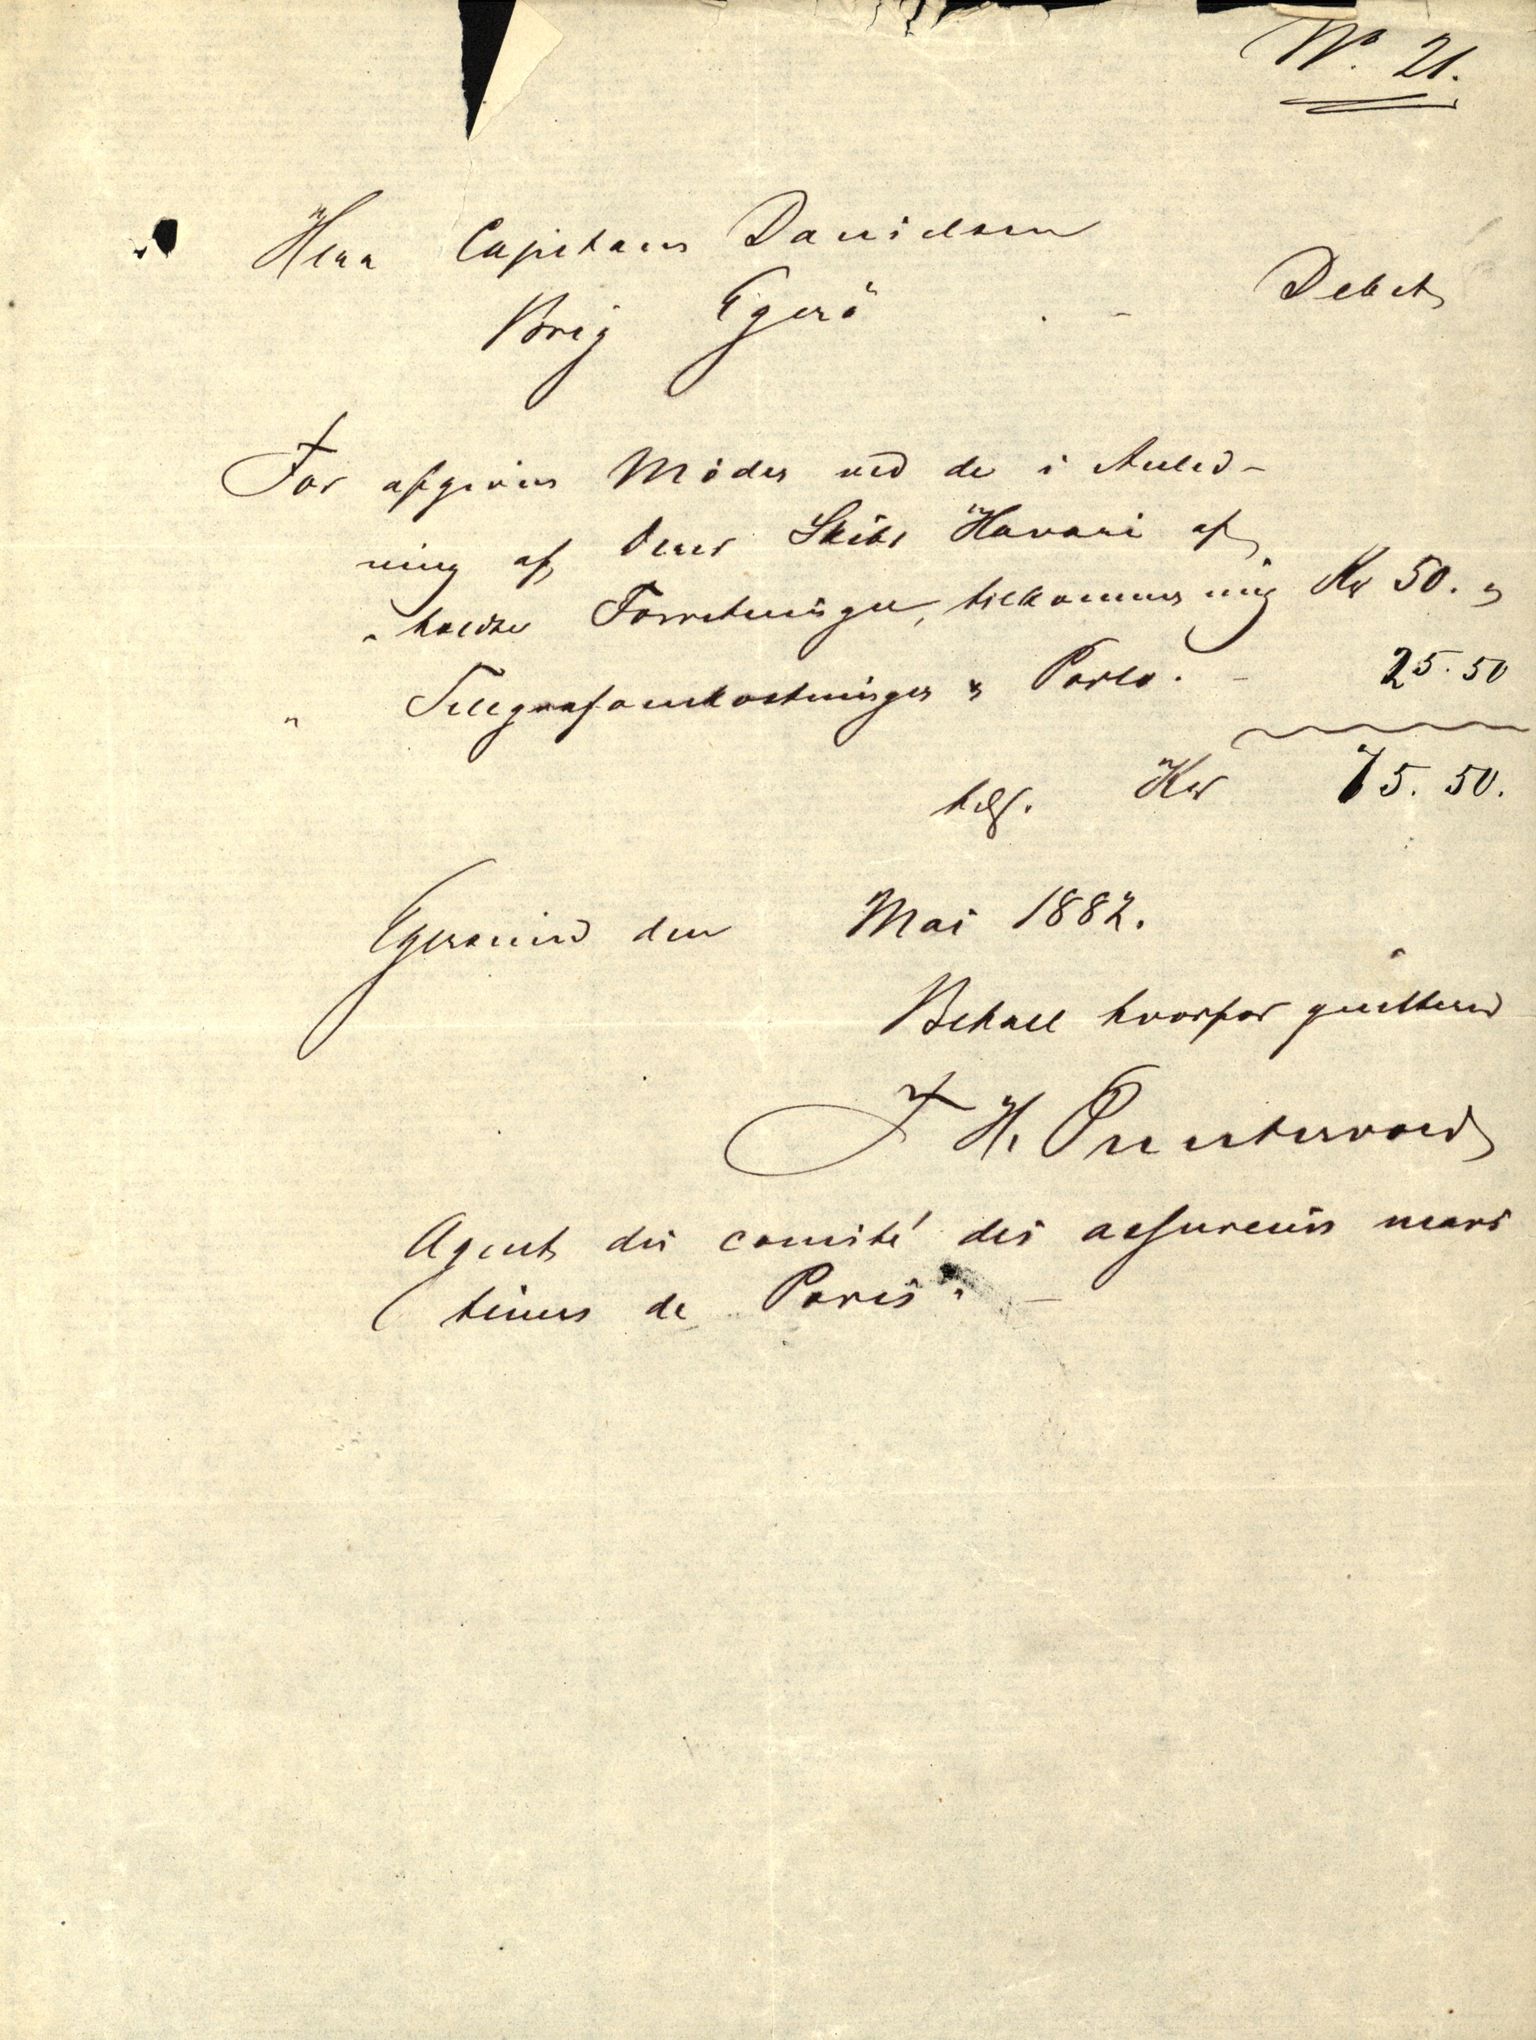 No. 21.
Herr Capitain Danielsen
Brig Egerö - Debet
For afgivne Möder ved de i Anled-
ning af Deres Skibs Havari af
" holdte Forretninger, tilkommer mig Kr 50. "
" Telegrafomkostninger & Porto. - 25.50
tils. Kr 75.50.
Egersund den Mai 1882.
Betalt hvorfor quitterer
F H. Puntervold
Agent du comité des assureurs mari
times de Paris. -